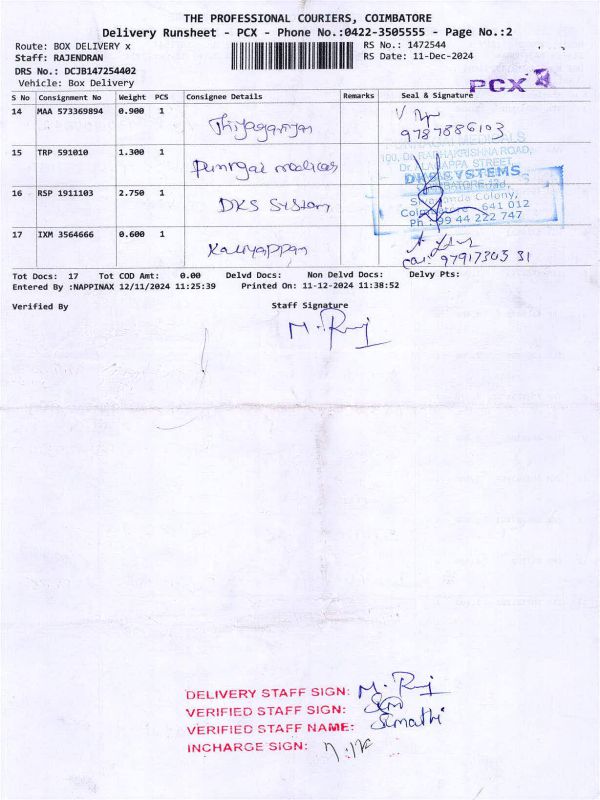 THE PROFESSIONAL COURIERS, COIMBATORE
Delivery Runsheet - PCX - Phone No.:0422-3505555 - Page No.:2
Route: BOX DELIVERY x RS No.: 1472544
Staff: RAJENDRAN RS Date: 11-Dec-2024
DRS No.: DCJB147254402
Vehicle: Box Delivery
PCX
S No Consignment No Weight PCS Consignee Details Remarks Seal & Signature
14 MAA 573369894 0.900 1 Thiyagarajan 9787886103
15 TRP 591010 1.300 1 medicals
100, Dr. RADHAKRISHNA ROAD,
STREET,
16 RSP 1911103 2.750 1 DKS System
DKS SYSTEMS
Colony,
641 012
Ph : 99 44 222 747
17 IXM 3564666 0.600 1 Kaliyappan
97917305 31
Tot Docs: 17 Tot COD Amt: 0.00 Delvd Docs: Non Delvd Docs: Delvy Pts:
Entered By :NAPPINAX 12/11/2024 11:25:39 Printed On: 11-12-2024 11:38:52
Verified By Staff Signature
M. Raj
DELIVERY STAFF SIGN: M. Raj
VERIFIED STAFF SIGN:
VERIFIED STAFF NAME: Sumathi
INCHARGE SIGN: